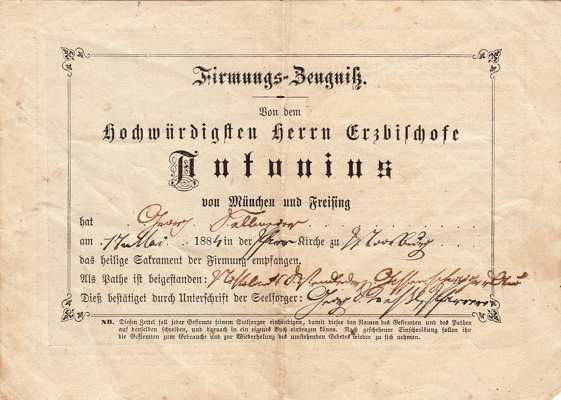 Firmungs-Zeugniß.
Von dem
Hochwürdigsten Herrn Erzbischofe
Antonius
von München und Freising
hat Georg
am 17ten Mai 1884 in der Pfarr Kirche zu Moosburg
das heilige Sakrament der Firmung empfangen.
Als Pathe ist beigestanden:
Dieß bestätiget durch Unterschrift der Seelsorger: Georg
NB. Diesen Zettel soll jeder Gefirmte seinem Seelsorger einhändigen, damit dieser den Namen des Gefirmten und des Pathen
auf denselben schreiben, und darnach in ein eigenes Buch eintragen könne. Nach geschehener Einschreibung sollen ihn
die Gefirmten zum Gebrauche und zur Wiederholung des umstehenden Gebetes wieder zu sich nehmen.